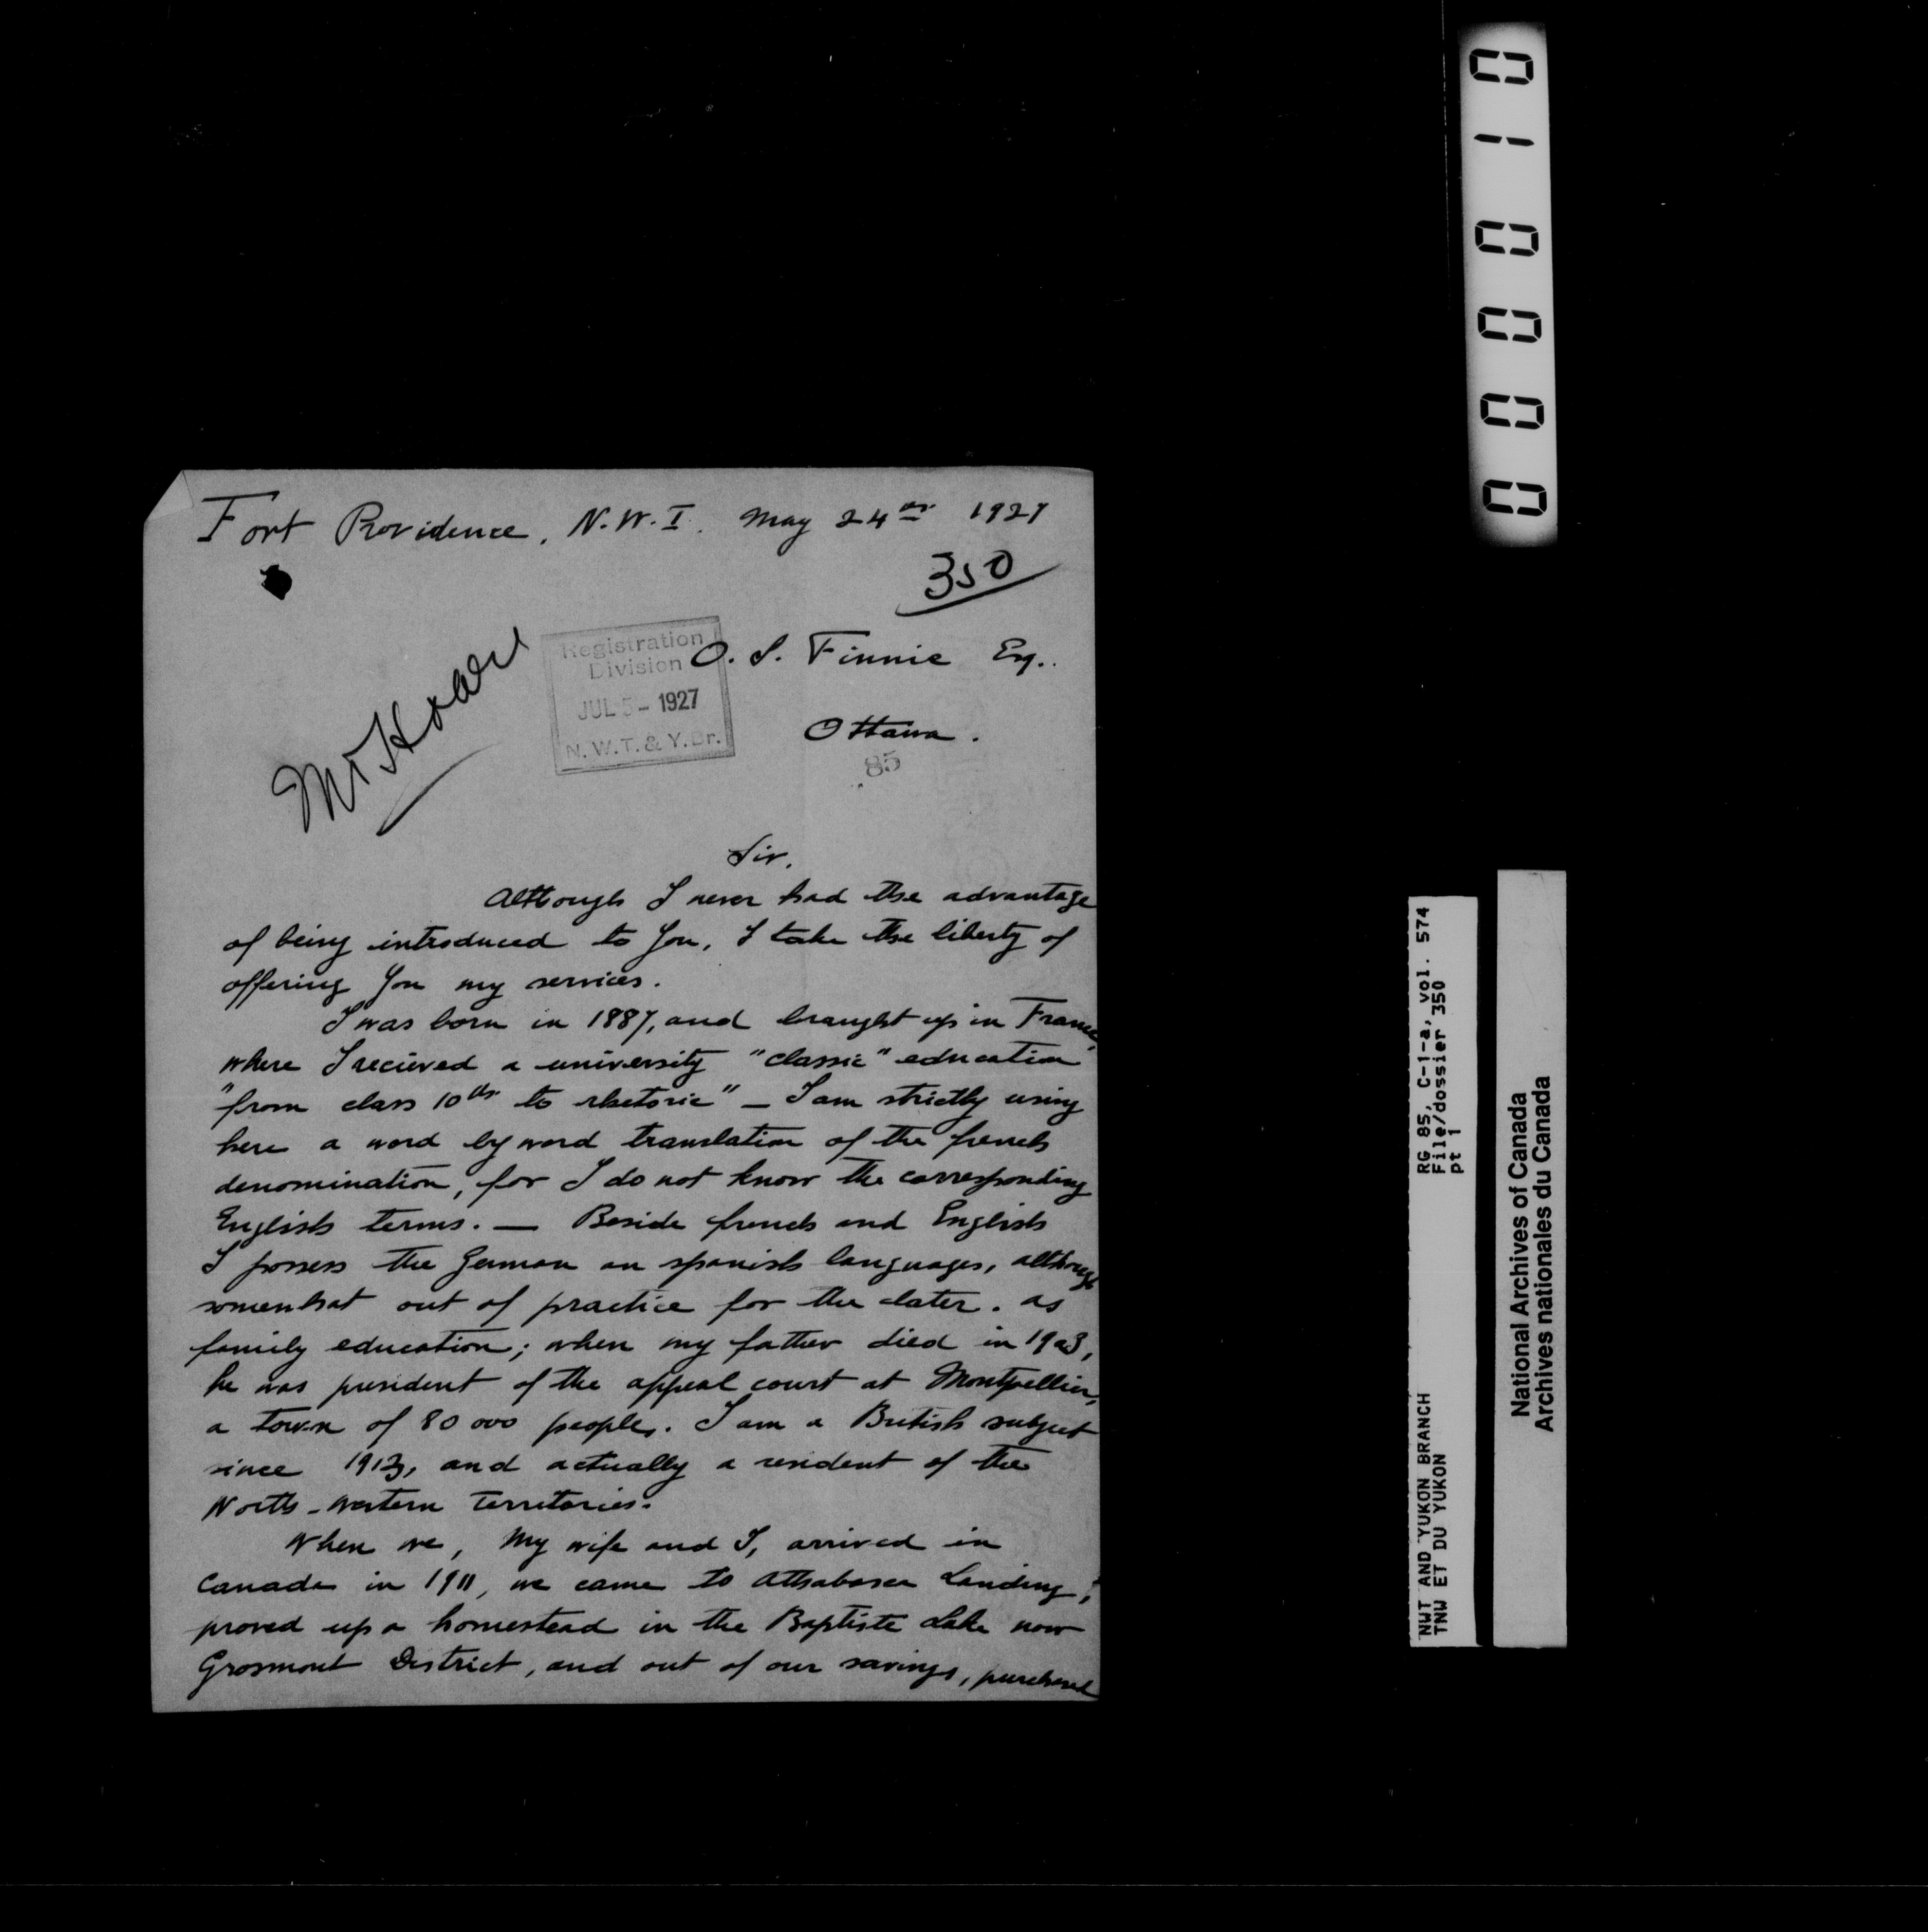 Fort Providence, N.W.T. May 24th 1927
350
Registration
Division
JUL 5 - 1927
N.W.T. & Y. Br.
O. S. Finnie Esq..
Ottawa.
85
Mr
Sir,
Although I never had the advantage
of being introduced to You, I take the liberty of
offering You my services.
I was born in 1887, and braught up in France,
where I recieved a university "classic" education
"from class 10th to rhetoric" — I am strictly using
here a word by word translation of the french
denomination, for I do not know the corresponding
English terms. — Beside french and English
I possess the German an spanish languages, although
somewhat out of practice for the later. as
family education; when my father died in 1903,
he was president of the appeal court at Montpellier,
a town of 80 000 people. I am a British subject
since 1913, and actually a resident of the
North-western Territories.
When we, My wife and I, arrived in
Canada in 1911, we came to Athabasca Landing,
proved up a homestead in the Baptiste Lake now
Grosmont District, and out of our savings, purchased
000010
RG 85, C-1-a, vol. 574
File/dossier 350
pt 1
NWT AND YUKON BRANCH
TNW ET DU YUKON
National Archives of Canada
Archives nationales du Canada